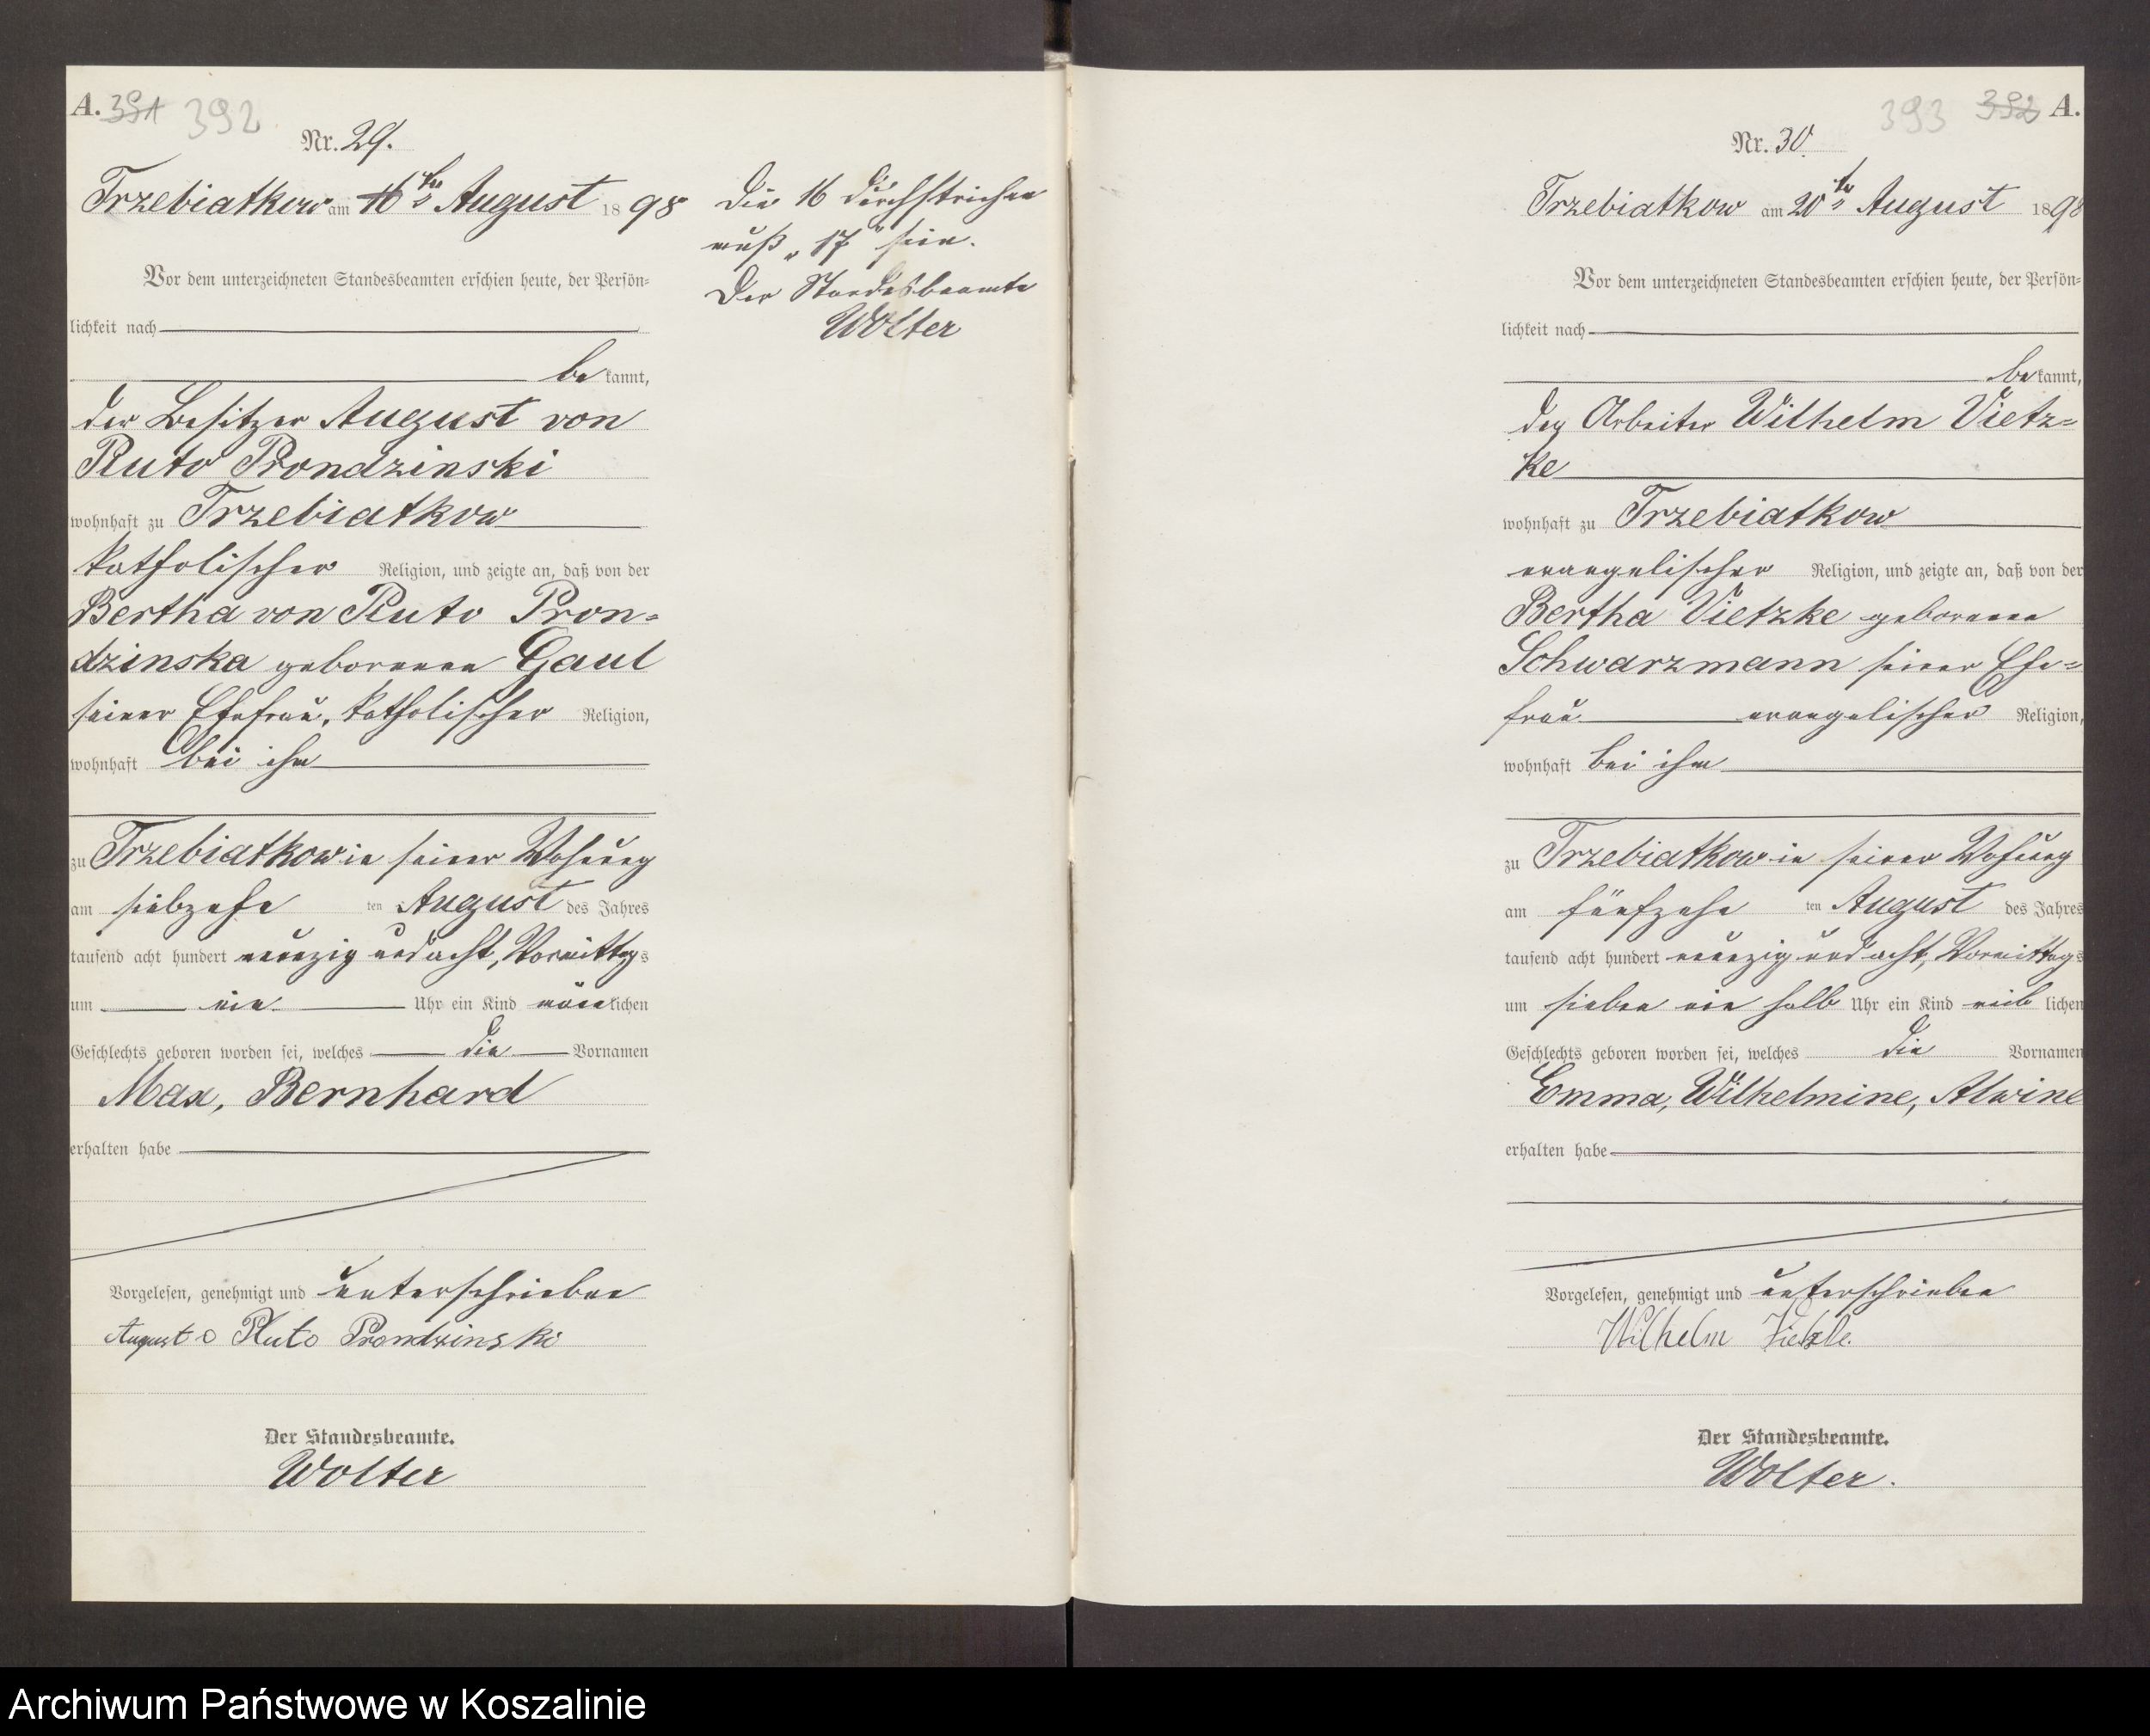 A. 391 392
Nr. 29.
Trzebiatkow am 16ten August 1898
Vor dem unterzeichneten Standesbeamten erschien heute, der Persön-
lichkeit nach
bekannt,
der Besitzer August von
Pluto Prondzinski
wohnhaft zu Trzebiatkow
katholischer Religion, und zeigte an, daß von der
Bertha von Pluto Pron-
dzinska geborenen Gaul
seiner Ehefrau, katholischer Religion,
wohnhaft bei ihm
zu Trzebiatkow in seiner Wohnung
am siebzehn ten August des Jahres
tausend acht hundert neunzig und acht, Vormittags
um ein Uhr ein Kind männlichen
Geschlechts geboren worden sei, welches die Vornamen
Max, Bernhard
erhalten habe
Vorgelesen, genehmigt und unterschrieben
August v Pluto Prondzinski
Der Standesbeamte.
Wolter
Die 16 durchstrichen
muß „17“ sein.
Der Standesbeamte
Wolter
393 392 A.
Nr. 30.
Trzebiatkow am 20ten August 1898
Vor dem unterzeichneten Standesbeamten erschien heute, der Persön-
lichkeit nach
bekannt,
der Arbeiter Wilhelm Vietz-
ke
wohnhaft zu Trzebiatkow
evangelischer Religion, und zeigte an, daß von der
Bertha Vietzke geborenen
Schwarzmann seiner Ehe-
frau evangelischer Religion,
wohnhaft bei ihm
zu Trzebiatkow in seiner Wohnung
am fünfzehn ten August des Jahres
tausend acht hundert neunzig und acht, Vormittags
um sieben ein halb Uhr ein Kind weiblichen
Geschlechts geboren worden sei, welches die Vornamen
Emma, Wilhelmine, Alwine
erhalten habe
Vorgelesen, genehmigt und unterschrieben
Wilhelm Vietzke.
Der Standesbeamte.
Wolter.
Archiwum Państwowe w Koszalinie